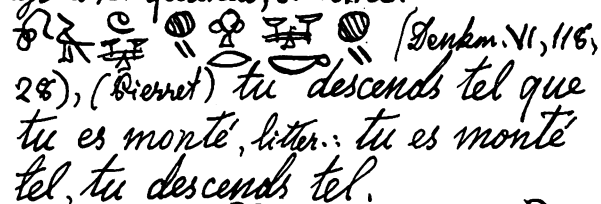 (Denkm. VI, 118,
28), (Pierret) tu descends tel que
tu es monté, litter.: tu es monté
tel, tu descends tel.